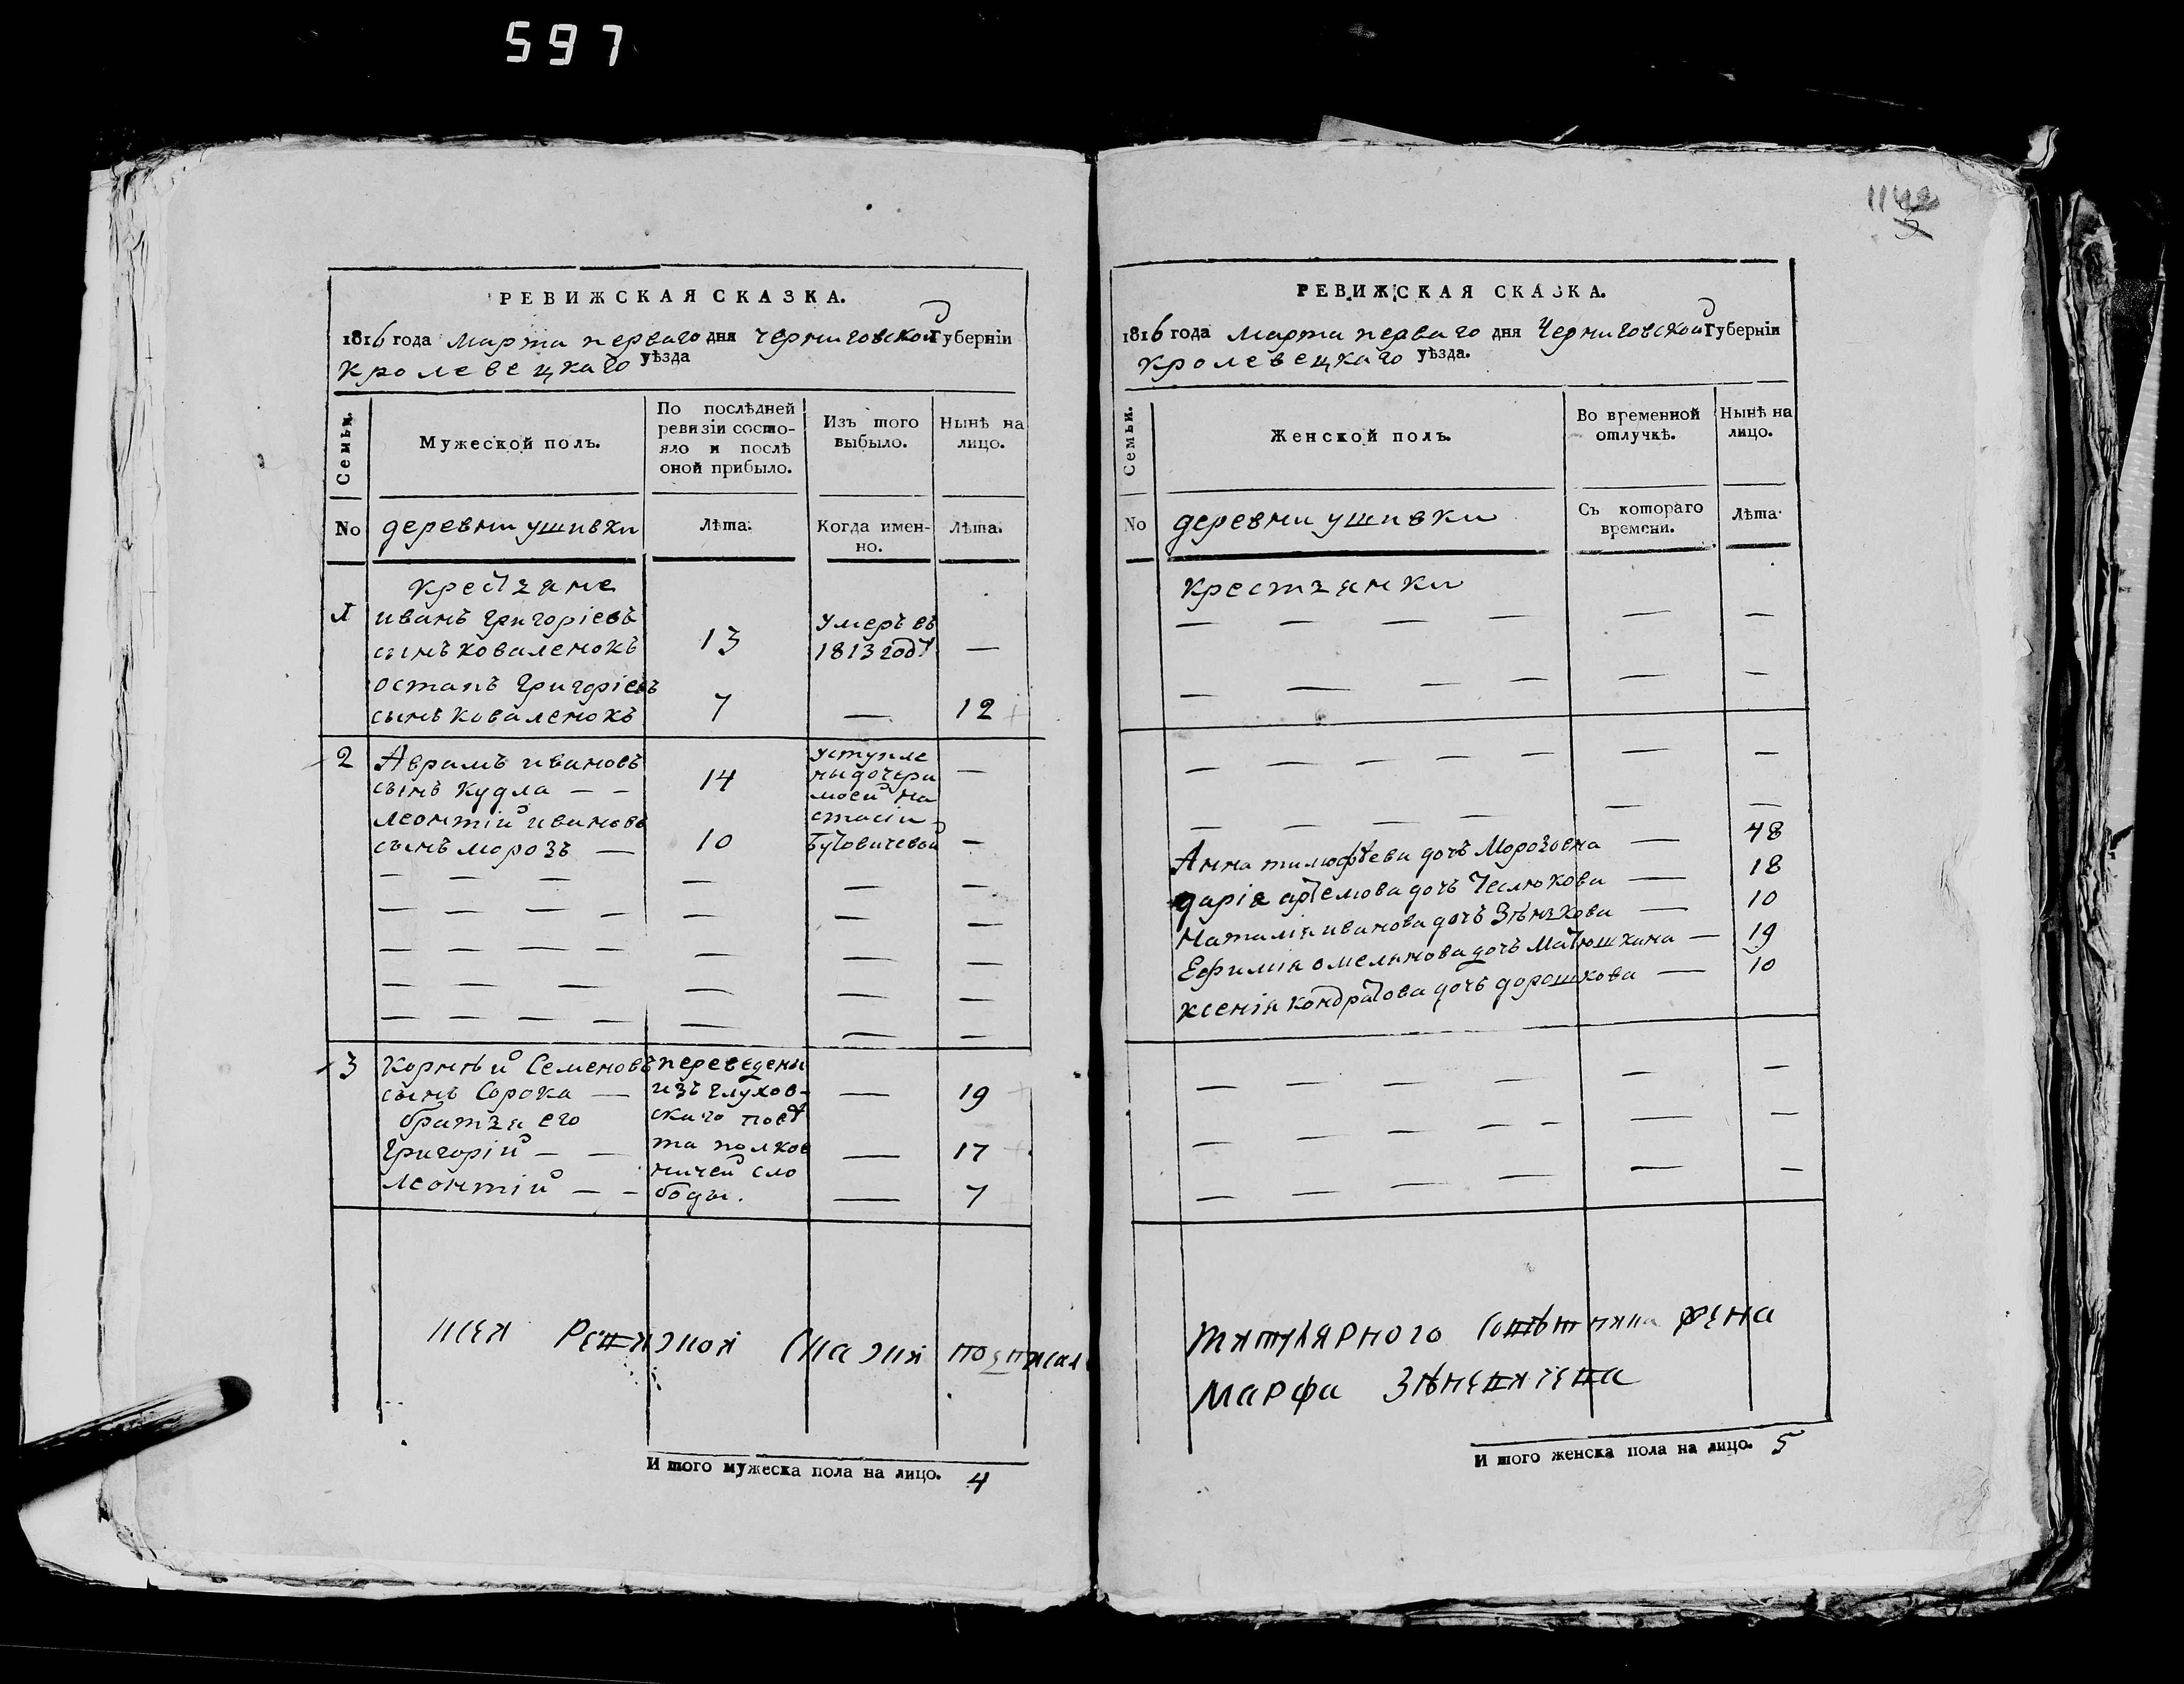 597
1142
5
РЕВИЖСКАЯ СКАЗКА.
1816 года марта перваго дня Черниговской Губерніи
Кролевецкаго уѣзда
Семьи.
Мужеской полъ.
По послѣдней ревизіи состояло и послѣ оной прибыло.
Изъ того выбыло.
Нынѣ на лицо.
No деревни ушивки
Лѣта.
Когда именно.
Лѣта.
крестьяне
1 иванъ григоріевъ
сынъ коваленокъ 13 умеръ въ 1813 году —
остапъ григоріевъ
сынъ коваленокъ 7 — 12
2 Аврамъ ивановъ
сынъ кудла — — 14 уступлены дочери моей на —
леонтій ивановъ
сынъ морозъ — 10 стасіи Бутовичевой —
— — — — — —
— — — — — — —
— — — — — — —
— — — — — — —
— — — — — — —
3 Корнѣй Семеновъ переведены
сынъ Сорока — изъ глухов- — 19
братья его скаго повѣ
григорій — — та полков — 17
леонтій — — ничей сло
боды. — 7
сея ревизкои сказки подписала
И того мужеска пола на лицо. 4
РЕВИЖСКАЯ СКАЗКА.
1816 года марта перваго дня Черниговской Губерніи
Кролевецкаго уѣзда.
Семьи.
Женской полъ.
Во временной отлучкѣ.
Нынѣ на лицо.
No деревни ушивки
Съ котораго времени.
Лѣта.
крестьянки
— — — — — —
— — — — — —
— — — — — — —
— — — — — —
Анна тимофѣева дочь Морозовна — 48
дарія артемова дочь Чеслюкова — 18
Наталія иванова дочь Зѣнькова — 10
Ефимія омельянова дочь Матюшкина — 19
ксенія кондратова дочь дорошкова — 10
— — — — — — —
— — — — — — —
— — — — — —
титулярного советника жена
Марфа Зѣневичева
И того женска пола на лицо. 5